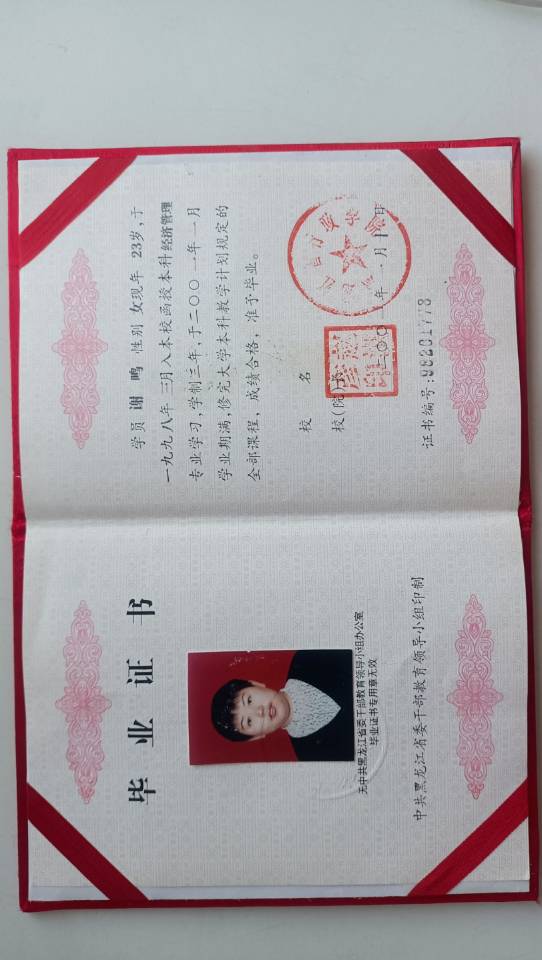 毕业证书
无中共黑龙江省委干部教育领导小组办公室
毕业证书专用章无效
中共黑龙江省委干部教育领导小组印制
学员 谢鸣 性别 女 现年 23岁,于
一九九八年 三月入本校函授本科经济管理
专业学习,学制三年,于二〇〇一年一月
学业期满,修完大学本科教学计划规定的
全部课程,成绩合格,准予毕业。
校 名
校(院)长
二〇〇 年 一月十 日
证书编号:98201773